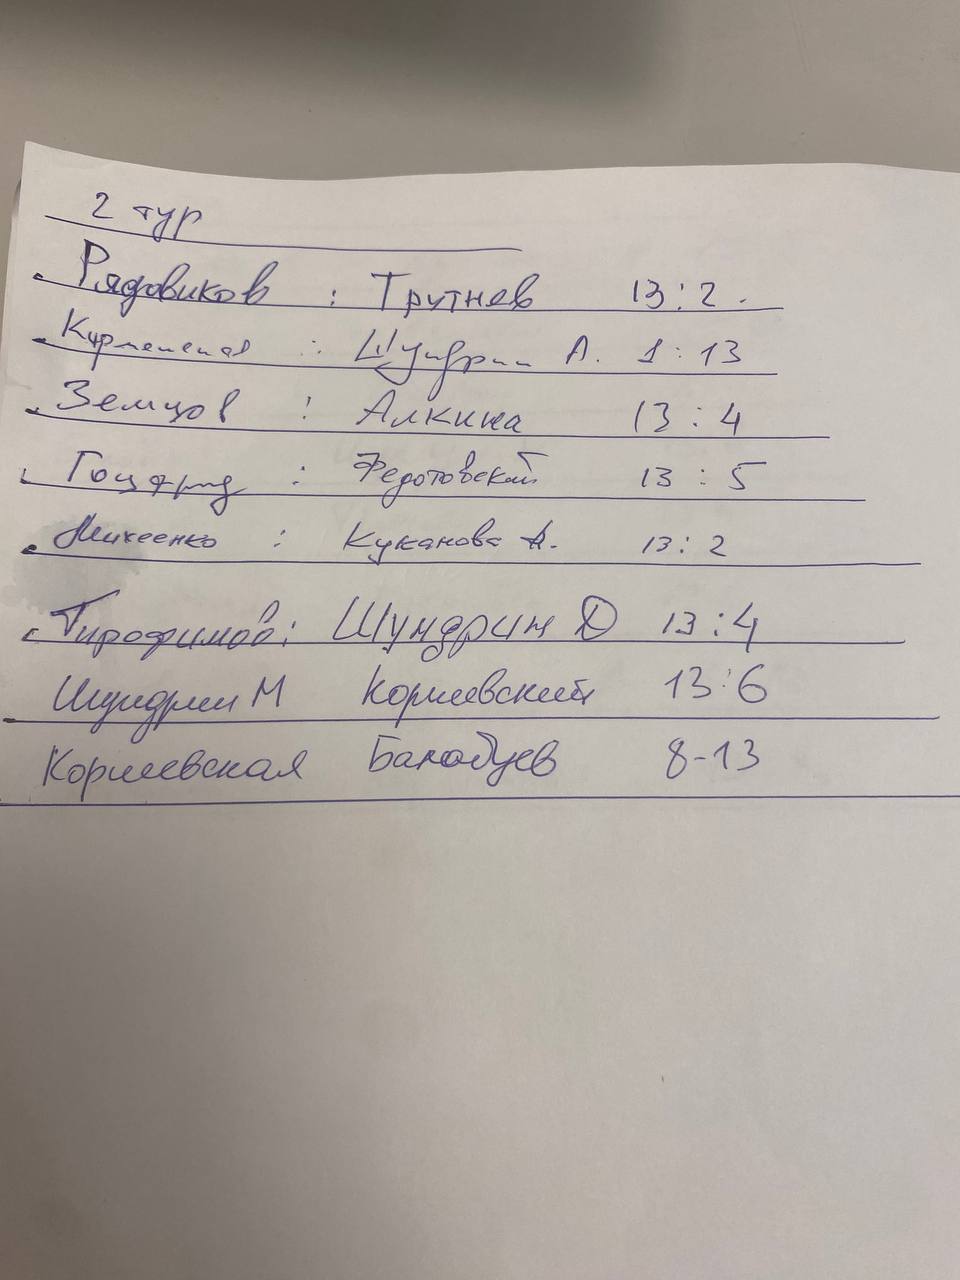 2 тур
Рядовиков : Трутнев 13:2.
: Шундрин А. 1:13
Земцов : Алкина 13:4
Гоцфрид : Федотовский 13:5
Михеенко : Куканова А. 13:2
: Шундрин Д 13:4
Шундрин М Коршевский 13:6
Коршевская Балабуев 8-13